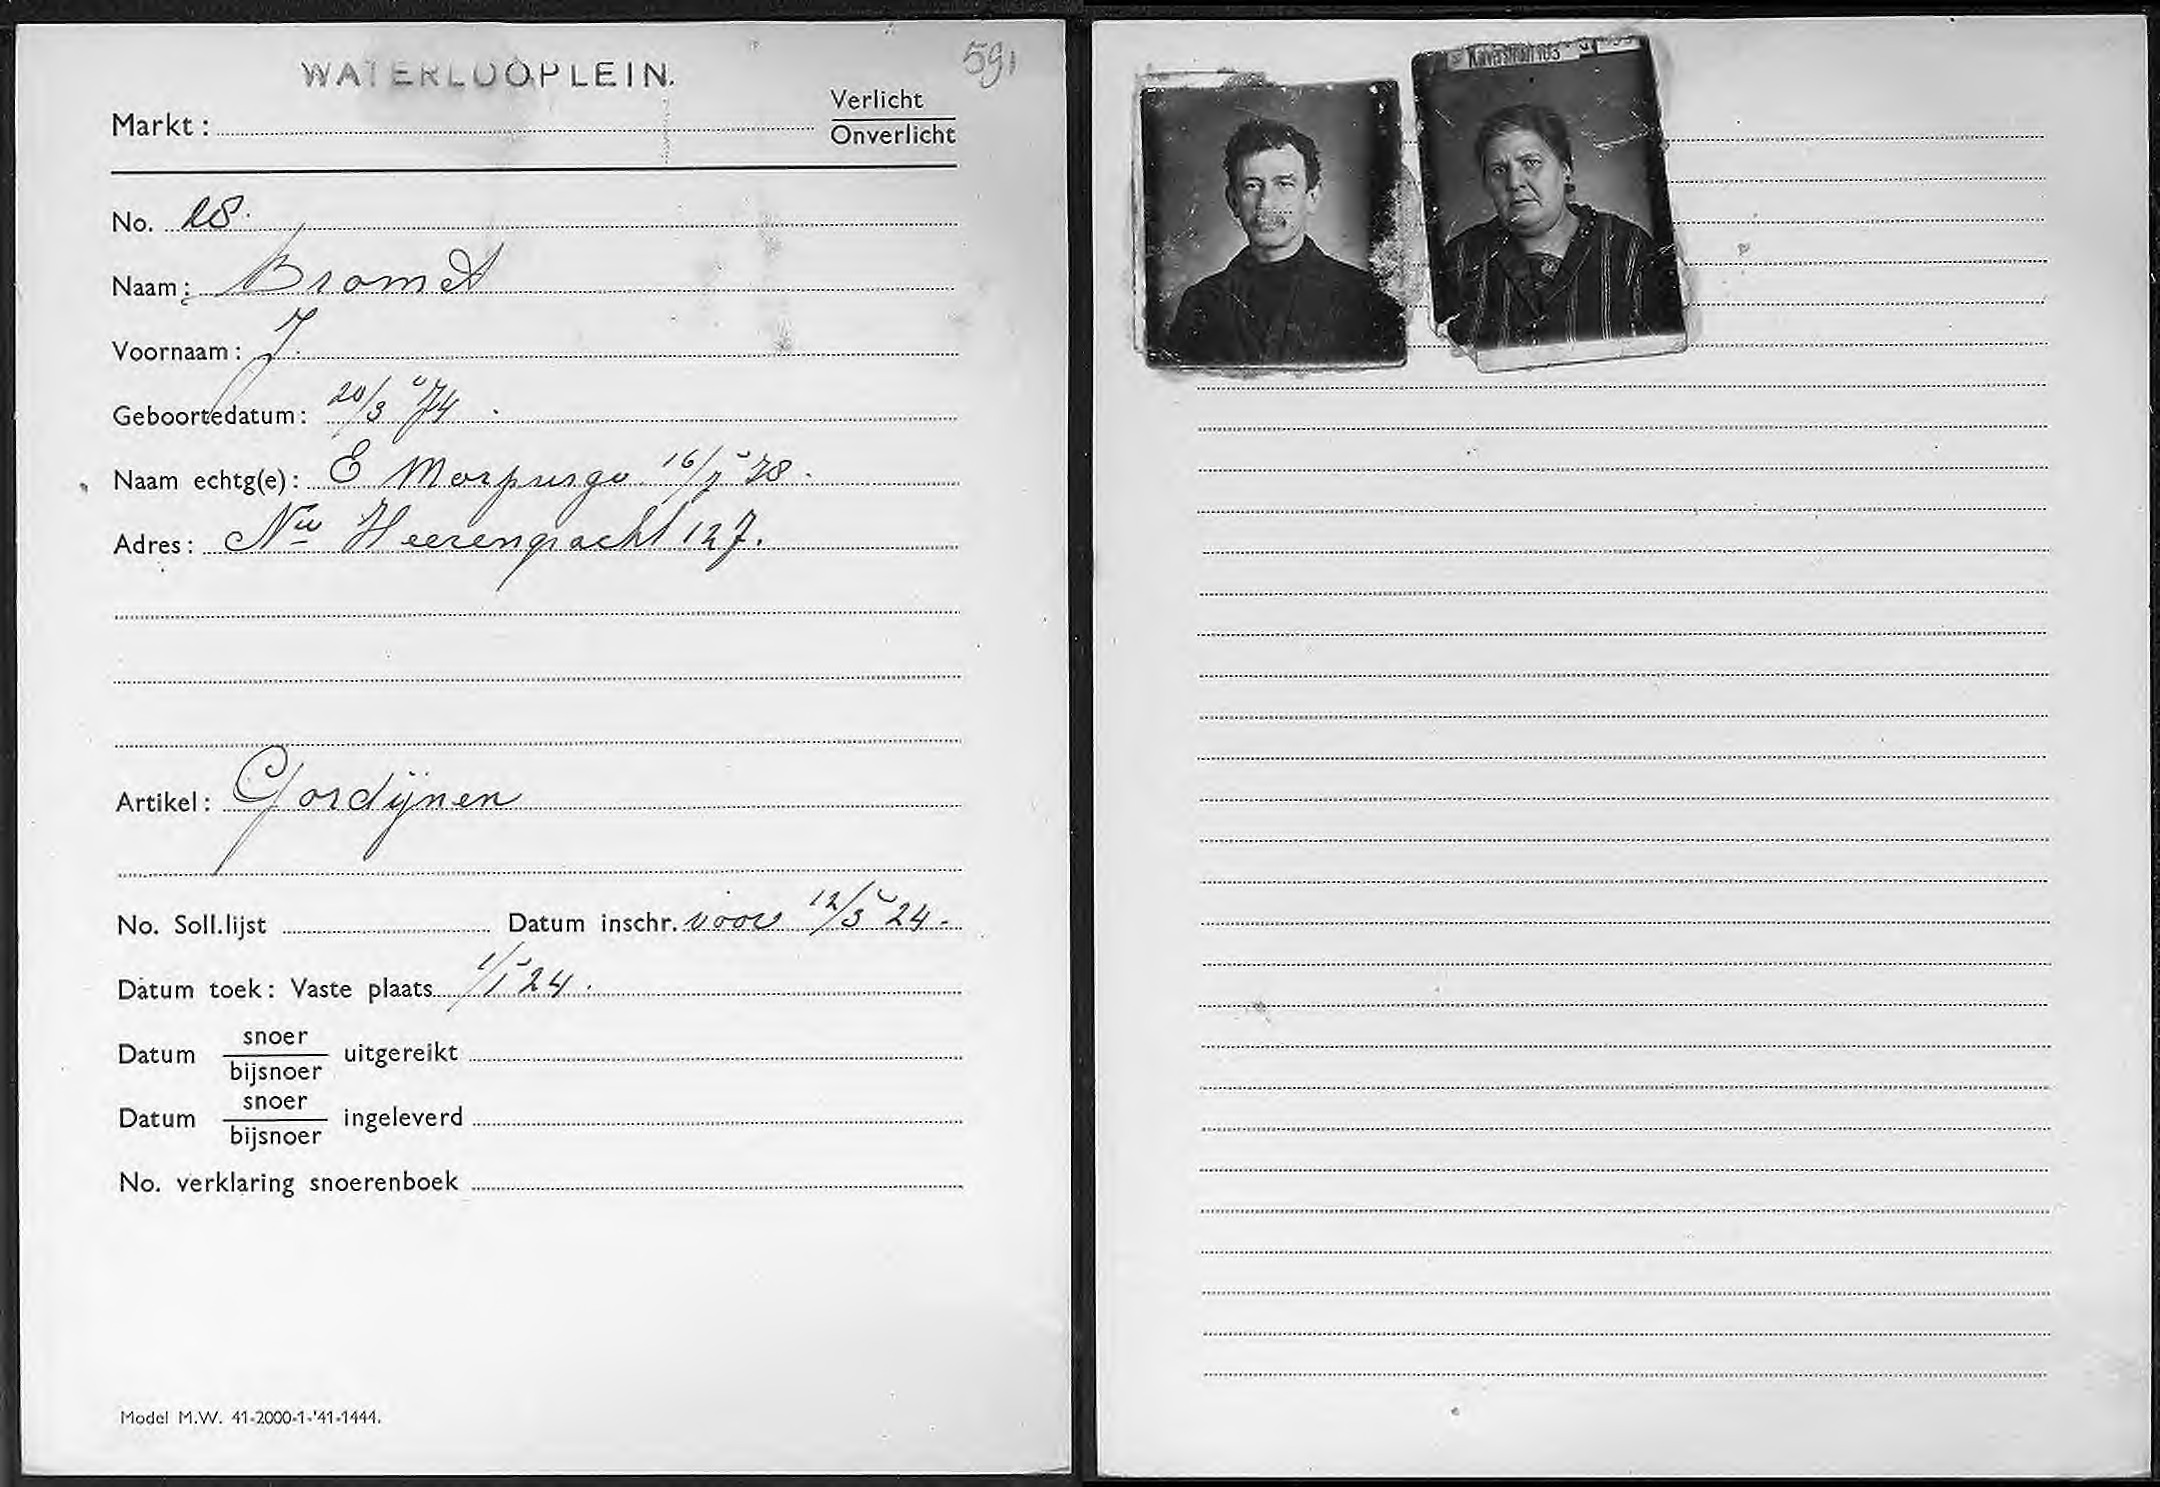 WATERLOOPLEIN.
591
Markt:
Verlicht
Onverlicht
No. 28.
Naam: Bromet
Voornaam: J.
Geboortedatum: 20/3 '74
Naam echtg(e): E Morpurgo 16/7 '78
Adres: Nw Heerengracht 127.
Artikel: Gordijnen
No. Soll.lijst Datum inschr. voor 12/3 24
Datum toek: Vaste plaats 1/1 24.
Datum snoer/bijsnoer uitgereikt
Datum snoer/bijsnoer ingeleverd
No. verklaring snoerenboek
Model M.W. 41-2000-1-'41-1444.